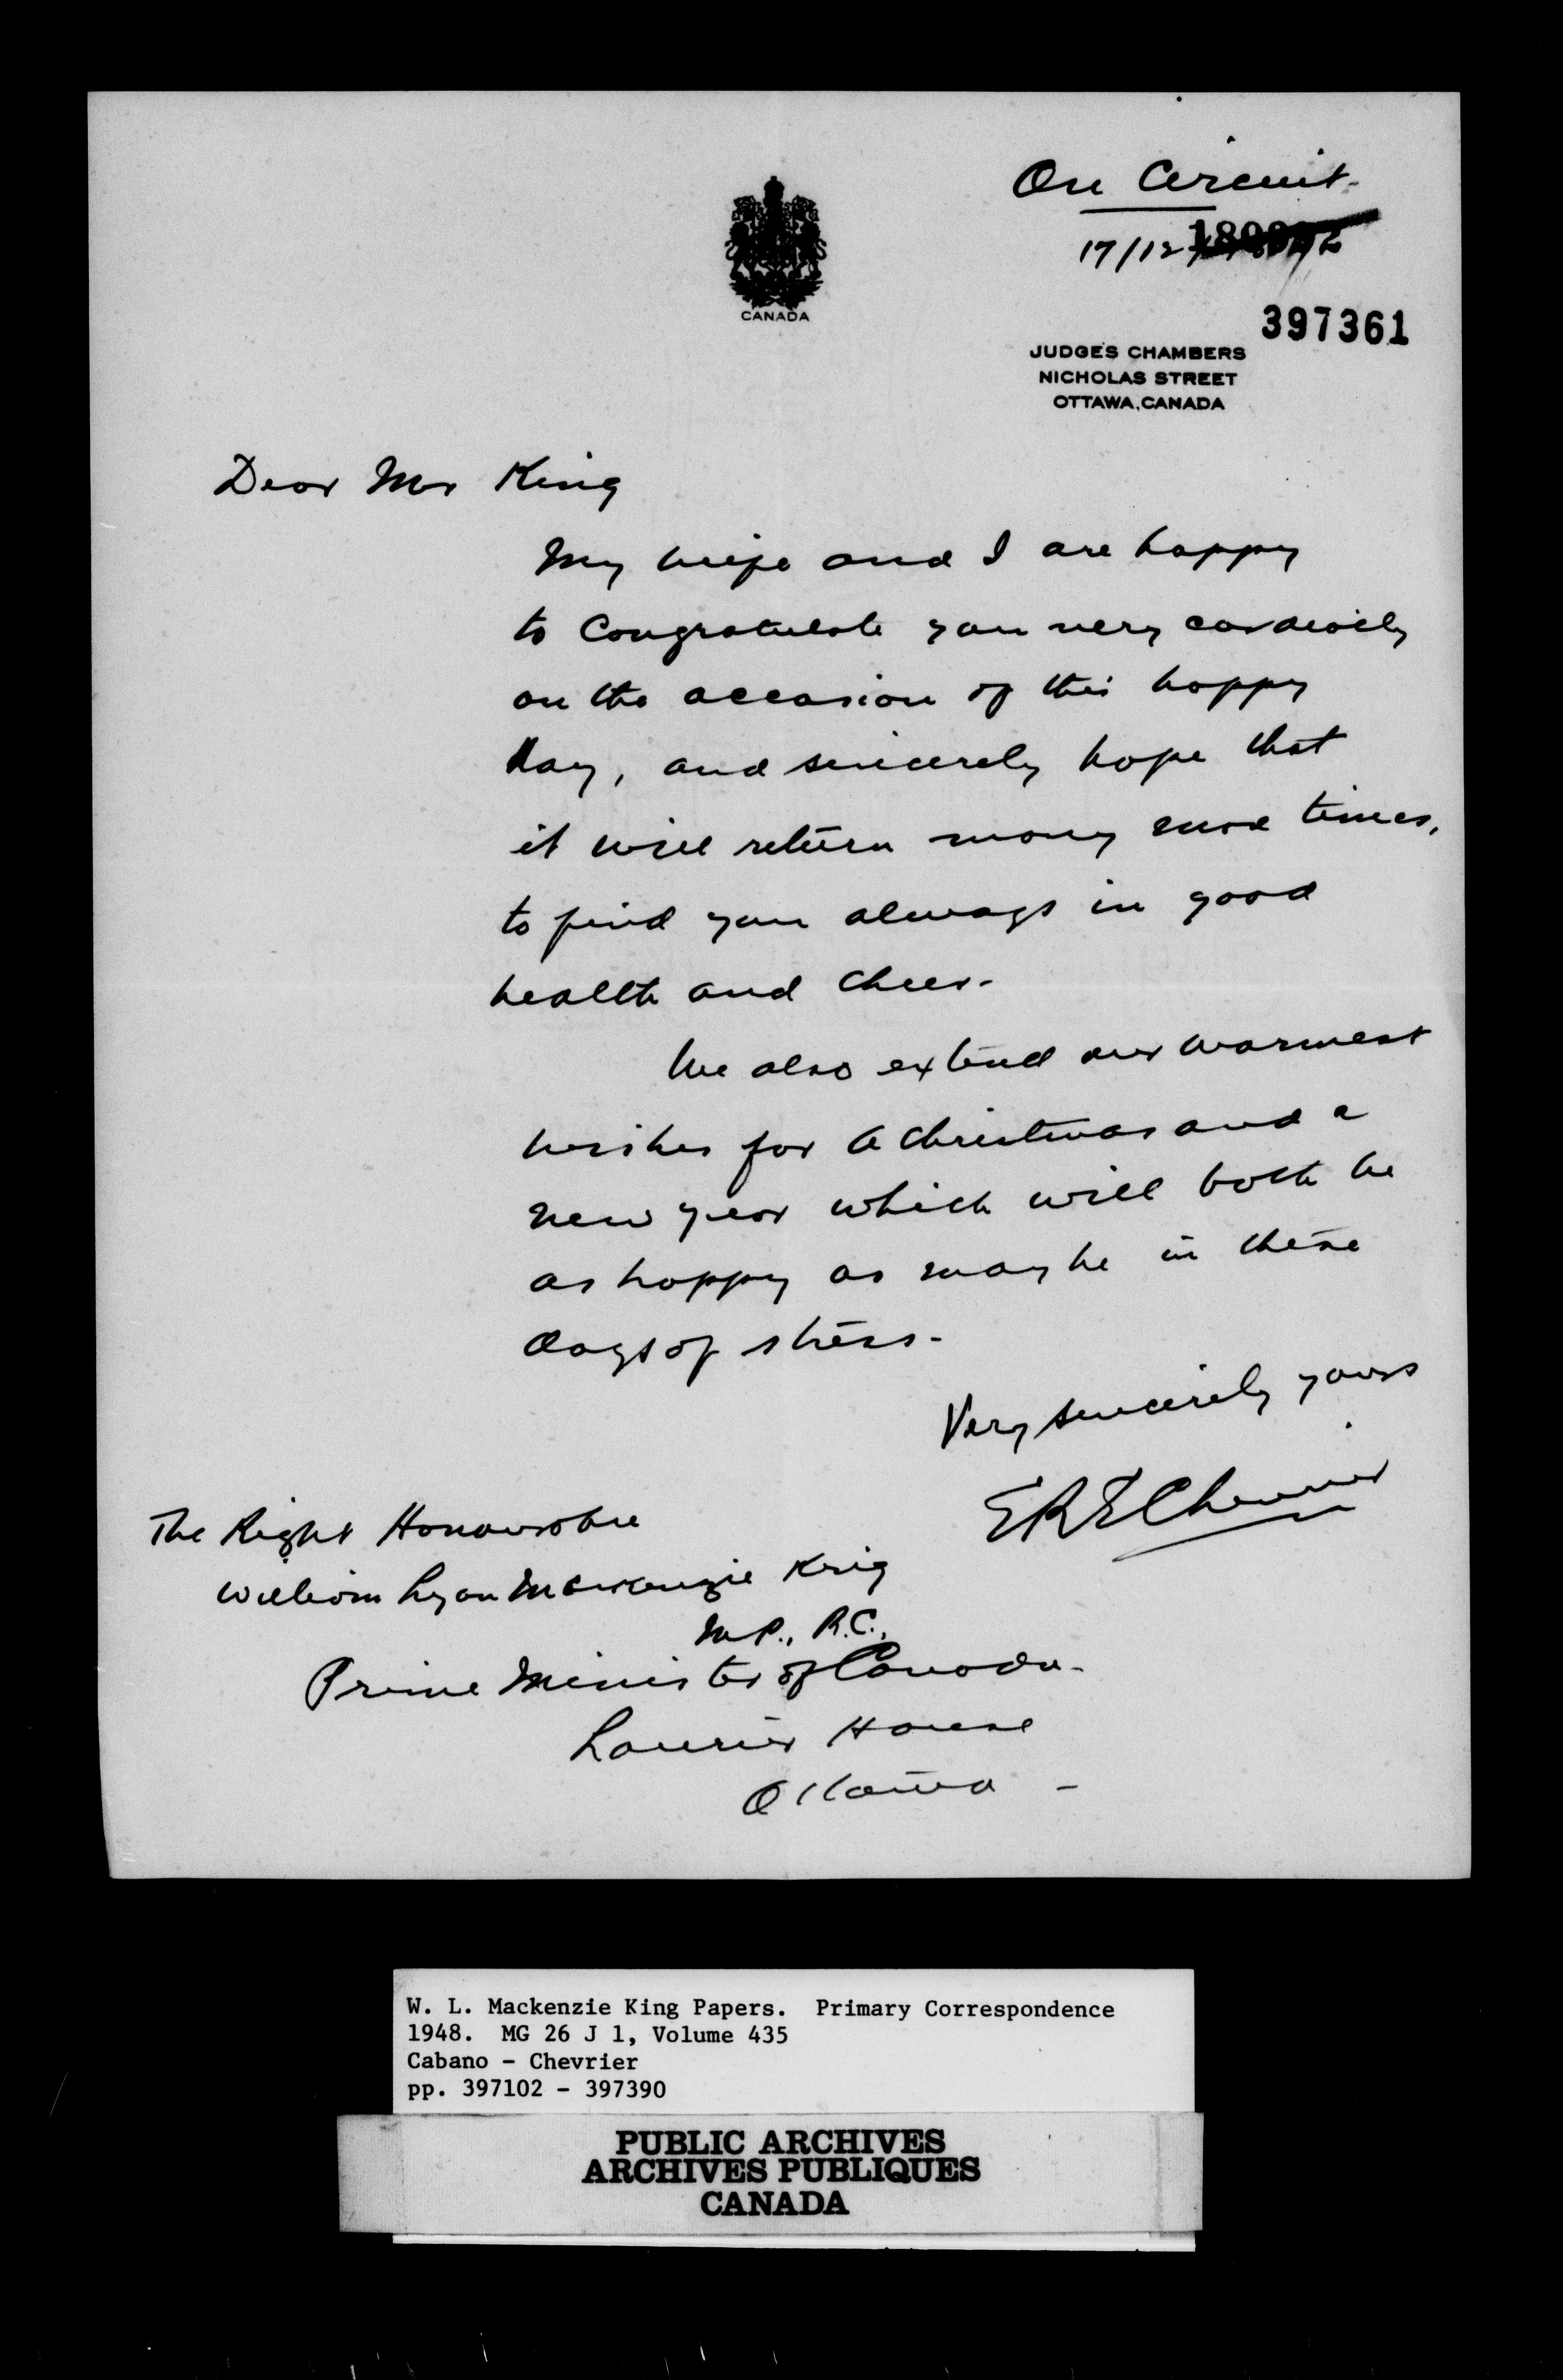 On Circuit.
17/12
397361
CANADA
JUDGE'S CHAMBERS
NICHOLAS STREET
OTTAWA, CANADA
Dear Mr King
My wife and I are happy
to Congratulate you very cordially
on the occasion of this happy
day, and sincerely hope that
it will return many more times,
to find you always in good
health and cheer.
We also extend our warmest
wishes for a Christmas and a
new year which will both be
as happy as may be in these
days of stress.
Very sincerely yours
E R E Chevrier
The Right Honourable
William Lyon Mackenzie King
M.P., P.C.,
Prime Minister of Canada.
Laurier House
Ottawa -
W. L. Mackenzie King Papers. Primary Correspondence
1948. MG 26 J 1, Volume 435
Cabano - Chevrier
pp. 397102 - 397390
PUBLIC ARCHIVES
ARCHIVES PUBLIQUES
CANADA